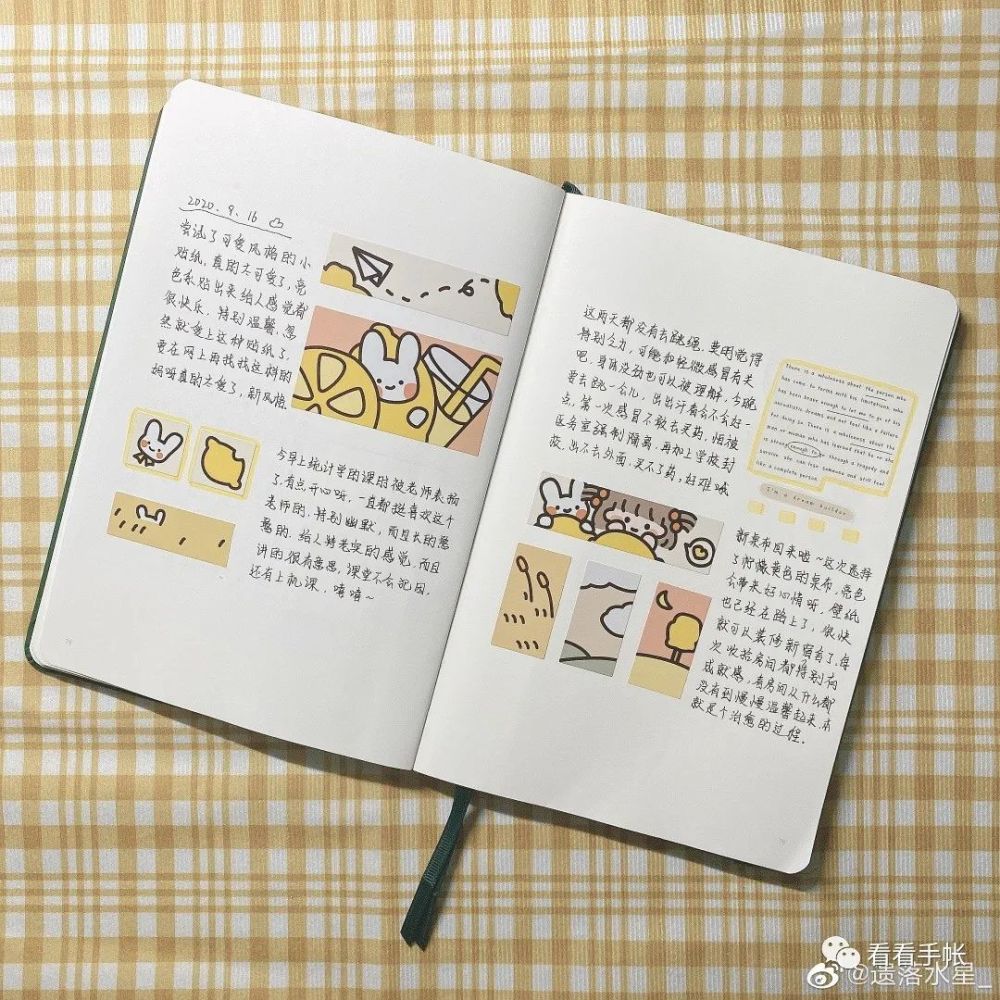 2020.9.16
尝试了可爱风格的小
贴纸,真的太可爱了,亮
色系贴出来给人感觉都
很快乐,特别温馨,忽
然就爱上这种贴纸了,
要在网上再找找这样的
妈呀真的太爱了,新风格
今早上统计学的课时被老师表扬
了,有点开心呀,一直都挺喜欢这个
老师的,特别幽默,而且长的憨
憨的,给人特老实的感觉,而且
讲的很有意思,课堂不会沉闷,
还有上机课,嘻嘻~
76
这两天都没有去跳绳,莫明觉得
特别乏力,可能和轻微感冒有关
吧,身体没劲也可以被理解,今晚
要去跳一会儿,出出汗看会不会好一
点,第一次感冒不敢去买药,怕被
医务室强制隔离,再加上学校封
校,出不去外面,买不了药,好难哦
There is a wholeness about the person who
has come to terms with his limitations, who
has been brave enough to let go of his
unrealistic dreams and not feel like a failure
for doing so. There is a wholeness about the
man or woman who has learned that he or she
is strong enough to go through a tragedy and
survive, she can lose someone and still feel
like a complete person.
I'm a dream builder
新桌布回来啦~这次选择
了柠檬黄色的桌布,亮色
会带来好心情呀,壁纸
也已经在路上了,很快
就可以装修新宿舍了,每
次收拾房间都特别有
成就感,看房间从什么都
没有到慢慢温馨起来,本
就是个治愈的过程.
看看手帐
@遗落水星_